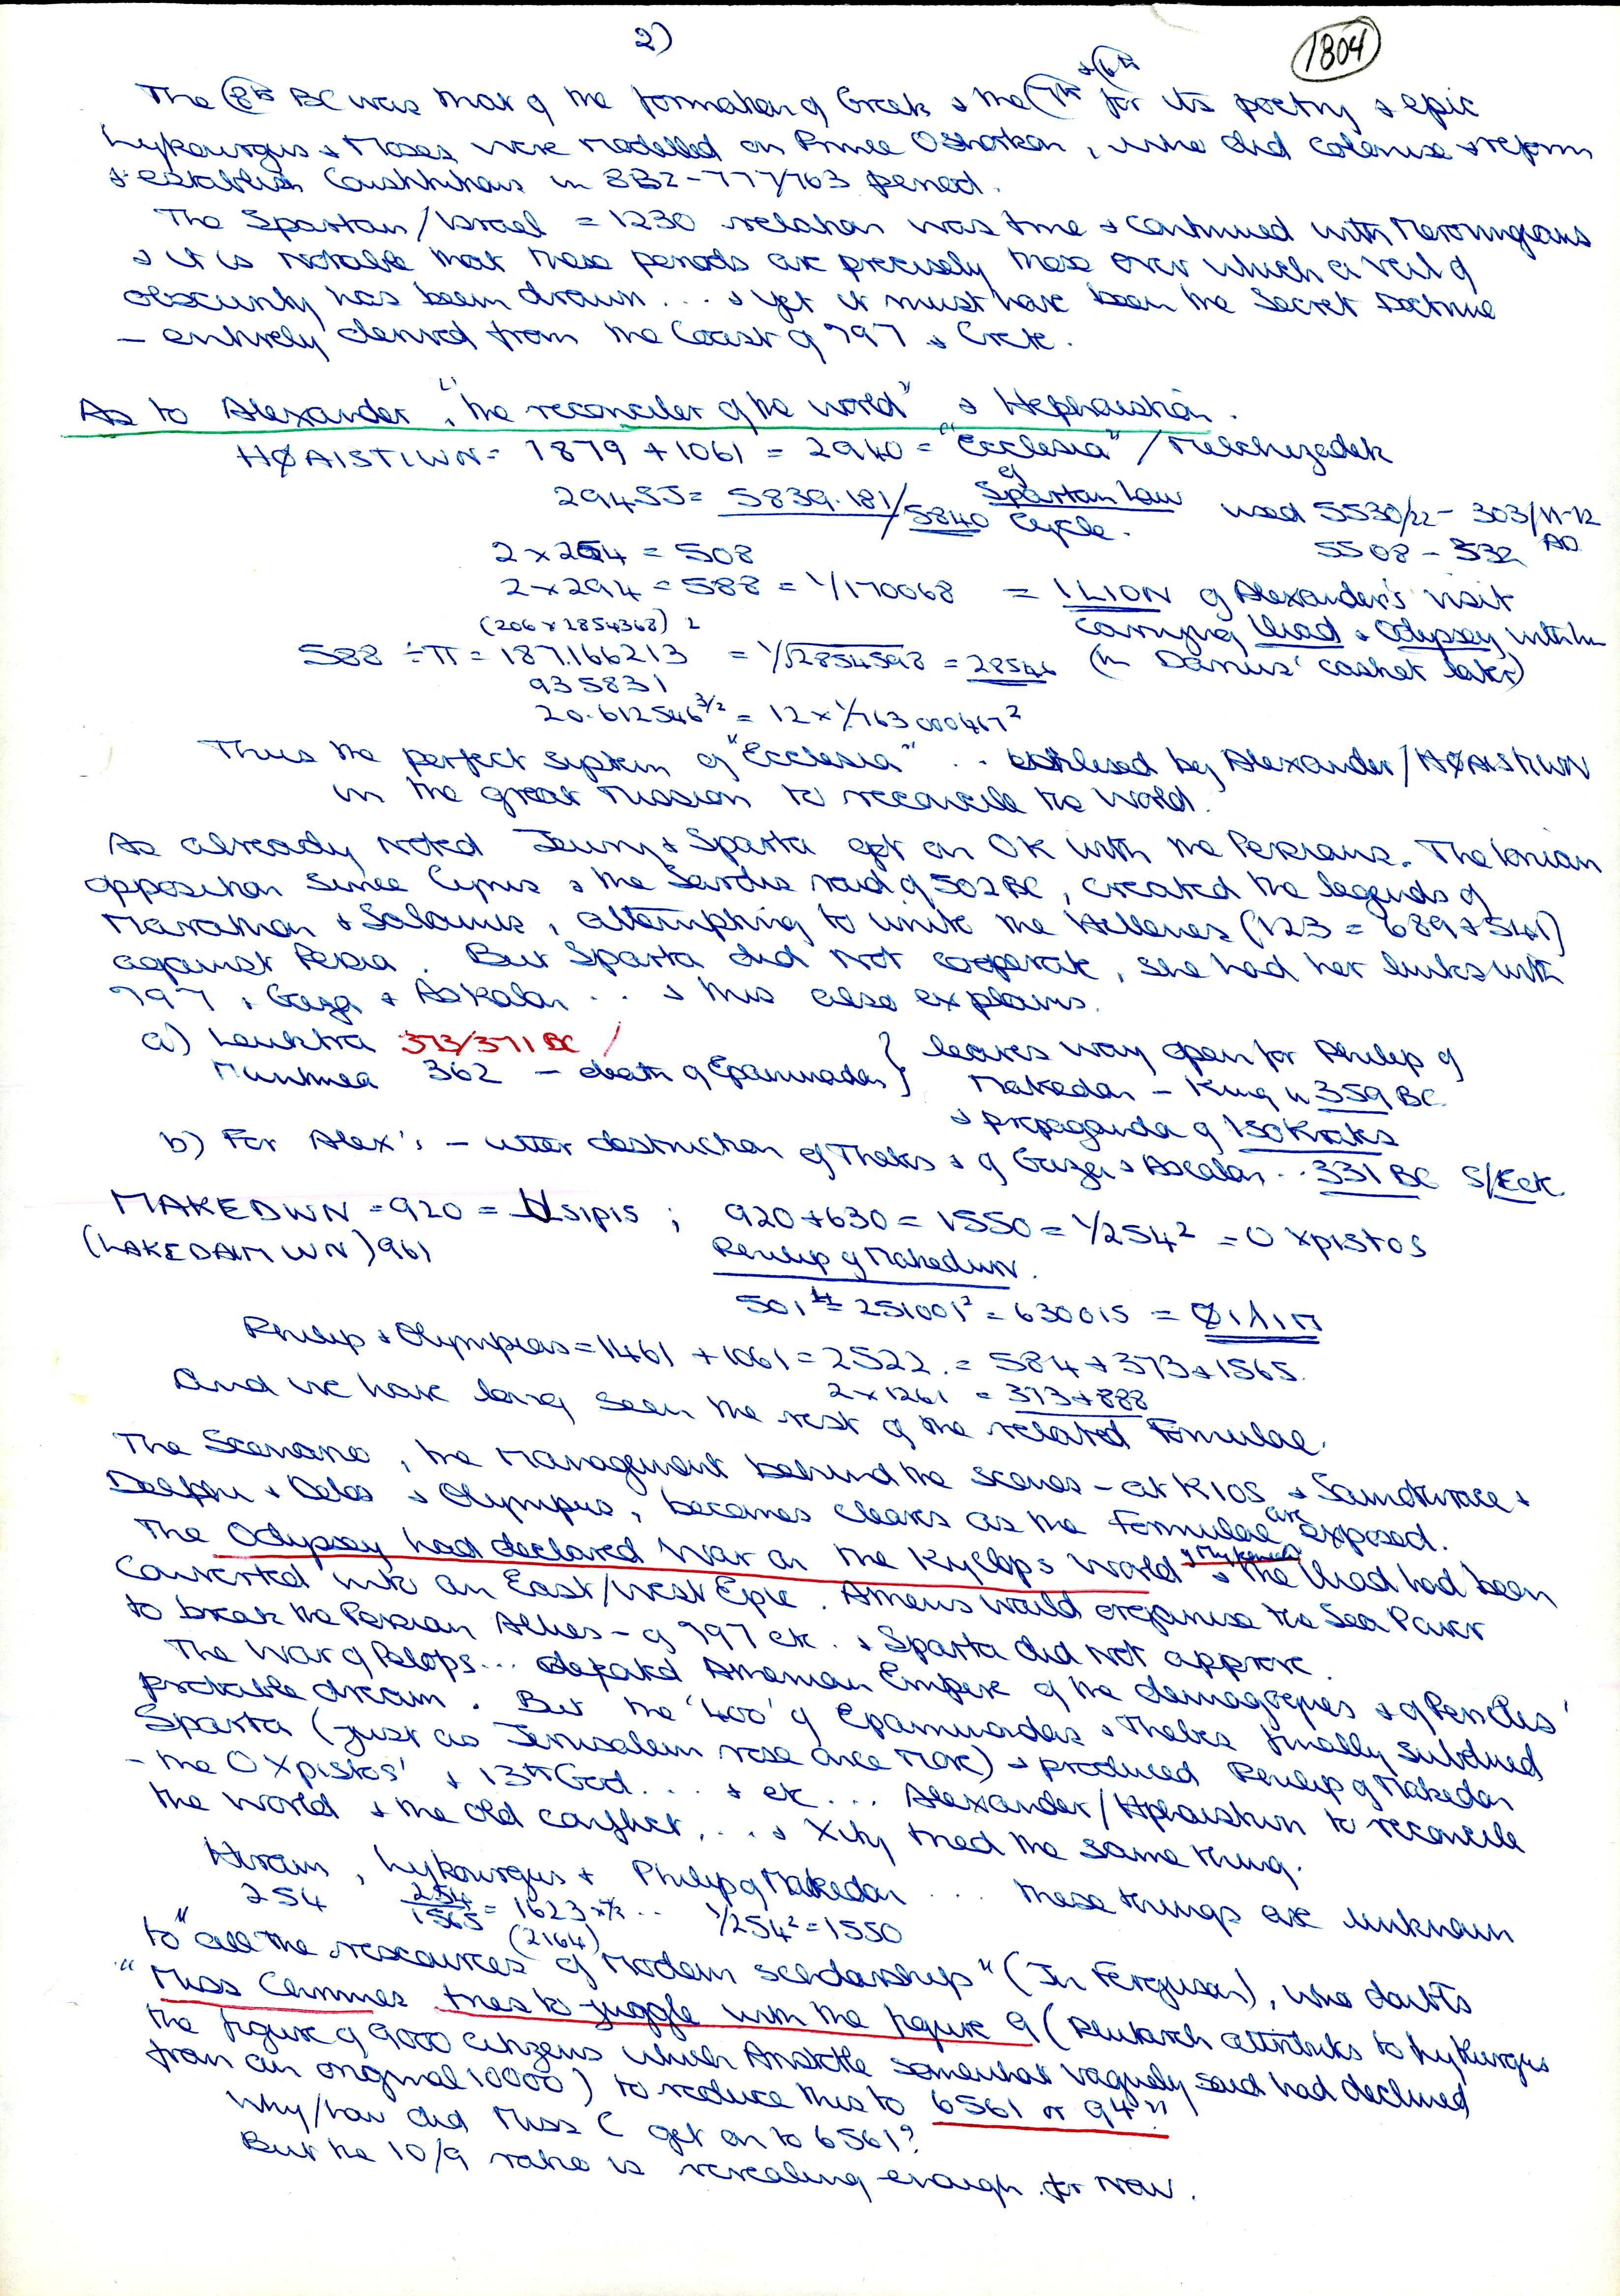 2)
1804
The 8th BC was that of the formation of Greek & the 7th & 6th for its poetry & epic
Lykourgus & Moses were modelled on Prince Osorkon, who did colonise & reform
& establish Constitutions in 882-777/763 period.
The Spartan/Israel = 1230 relation was true & continued with Merovingians
& it is notable that these periods are precisely those over which a veil of
obscurity has been drawn ... & yet it must have been the Secret Doctrine
- entirely derived from the Coast of 797 & Crete.
As to Alexander, "the reconciler of the world" & Hephaistion.
HØAISTIWN = 1879 + 1061 = 2940 = "Ecclesia" / Melchizadek
29455 = 5839.181/5840 of Spartan Law Cycle. used 5530/22 - 303/11-12 AD
5508 - 532
2 x 254 = 508
2 x 294 = 588 = 1/170068 = ILION of Alexander's visit
(206 x 2854368) 2 carrying Iliad & Odyssey with him
588 ÷ π = 187.166213 = 1/√2854598 = 28546 (in Darius' casket later)
935831
20.612546 3/2 = 12 x 1/763000467²
Thus the perfect system of "Ecclesia" .. utilised by Alexander/HØAISTIWN
in the great mission to reconcile the world.
As already noted Jewry & Sparta got on OK with the Persians. The Ionian
opposition since Cyrus & the Sardis raid of 502 BC, created the legends of
Marathon & Salamis, attempting to unite the Hellenes (123 = 689 + 541)
against Persia. But Sparta did not cooperate, she had her links with
797, Gaza & Askalon ... & this also explains.
a) Leuktra 373/371 BC / } leaves way open for Philip of
Mantinea 362 - death of Epaminadas } Makedon - King in 359 BC
& propaganda of ISOKrates
b) For Alex's - utter destruction of Thebes & of Gaza & Ascalon .. 331 BC S/Eck
MAKEDWN = 920 = UsipIs ; 920 + 630 = 1550 = 1/254² = O XpIstos
(LAKEDAIMWN) 961 Philip of Makedwn.
501⁴ = 251001² = 630015 = ØIΛIΠ
Philip & Olympias = 1461 + 1061 = 2522. = 584 + 373 + 1565.
2 x 1261 = 373 + 888
And we have long seen the rest of the related Formulae.
The Scenario, the management behind the scenes - at KIOS & Samothrace &
Delphi & Delos & Olympus, becomes clearer as the Formulae are exposed.
The Odyssey had declared War on the Kyclops World of Mykenai & the Iliad had been
converted into an East/West Epic. Athens would organise the Sea Power
to break the Persian Allies - of 797 etc. & Sparta did not approve.
The War of Pelops ... defeated Athenian Empire of the demagogues & of Pericles'
probable dream. But the '400' of Epaminondas & Thebes finally subdued
Sparta (just as Jerusalem rose once more) & produced Philip of Makedon
- the O Xpistos' & 13th God .... & etc ... Alexander/Hphaistiwn to reconcile
the world & the old conflict, ... & Xity tried the same thing.
Hiram, Lykourgus & Philip of Makedon .... these things are unknown
254 254/1565 = 1623 .. 1/254² = 1550
(2164)
to "all the resources of Modern scholarship" (Jn Ferguson), who doubts
"Miss Chrimes tries to juggle with the figure 9 (Plutarch attributes to Lykurgus
the figure of 9000 citizens which Aristotle somewhat vaguely said had declined
from an original 10000) to reduce this to 6561 or 9⁴"
Why/how did Miss C get on to 6561?
But the 10/9 ratio is revealing enough for now.